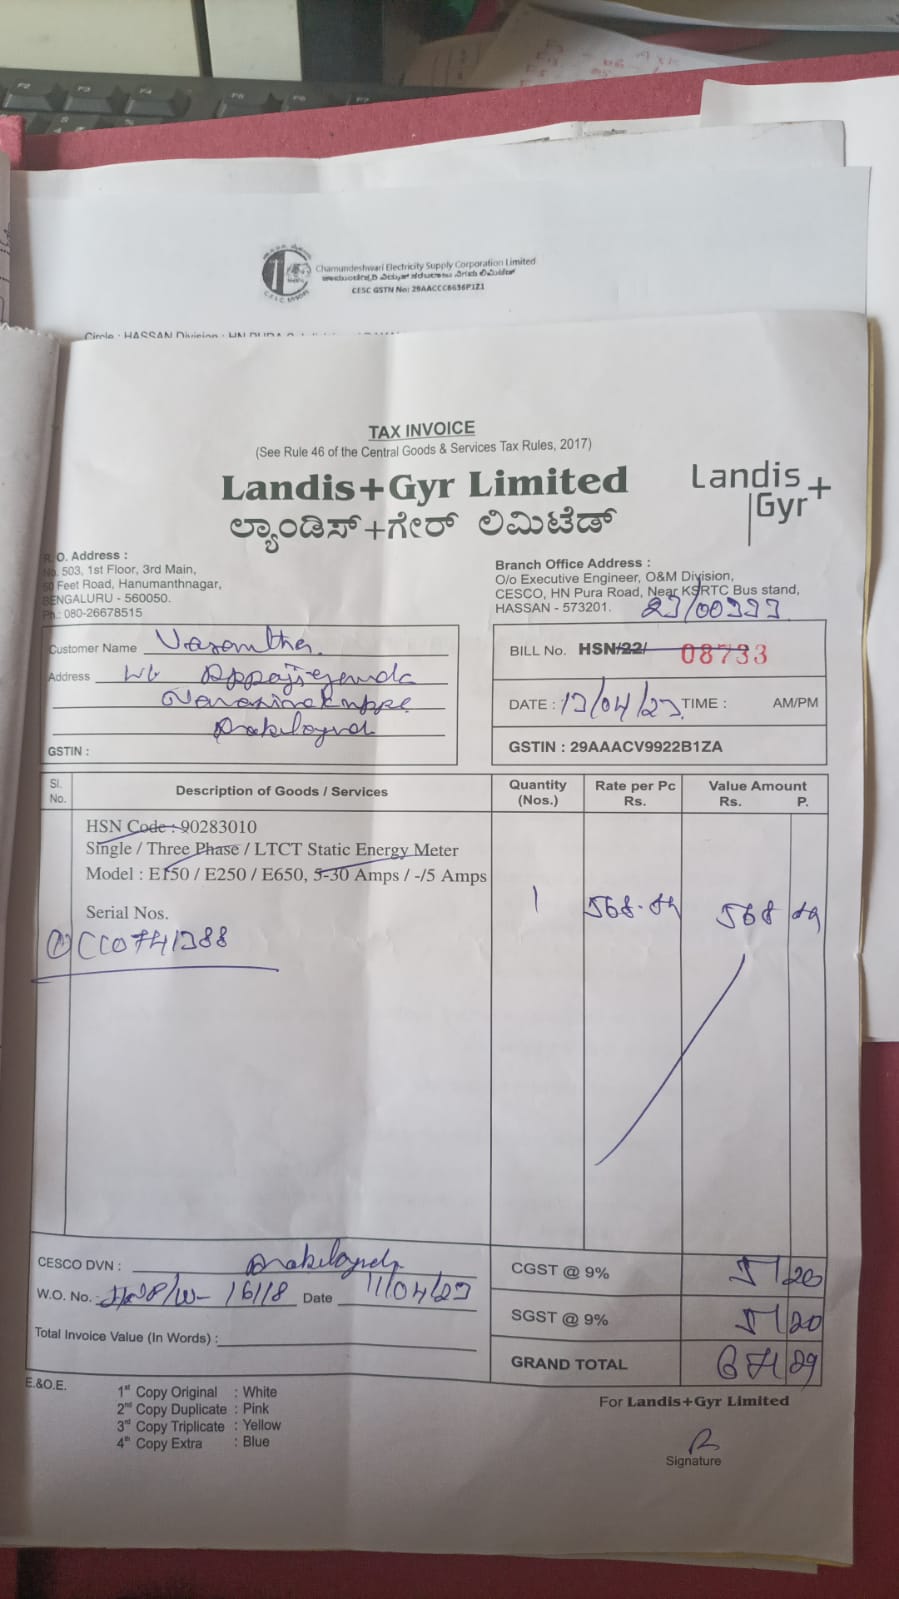 Chamundeshwari Electricity Supply Corporation Limited
ಚಾಮುಂಡೇಶ್ವರಿ ವಿದ್ಯುತ್ ಸರಬರಾಜು ನಿಗಮ ಲಿಮಿಟೆಡ್
CESC GSTN No: 29AACCC6636P1Z1
Circle : HASSAN Division : HN PURA
TAX INVOICE
(See Rule 46 of the Central Goods & Services Tax Rules, 2017)
Landis+Gyr Limited
ಲ್ಯಾಂಡಿಸ್+ಗೇರ್ ಲಿಮಿಟೆಡ್
Landis
Gyr+
R. O. Address :
No. 503, 1st Floor, 3rd Main,
Feet Road, Hanumanthnagar,
BENGALURU - 560050.
Ph.: 080-26678515
Branch Office Address :
O/o Executive Engineer, O&M Division,
CESCO, HN Pura Road, Near KSRTC Bus stand,
HASSAN - 573201.
Customer Name Vasantha
Address
GSTIN :
BILL No. HSN/22/ 08733
DATE : 13/04/23 TIME : AM/PM
GSTIN : 29AAACV9922B1ZA
Sl. No. Description of Goods / Services Quantity (Nos.) Rate per Pc Rs. Value Amount Rs. P.
HSN Code : 90283010
Single / Three Phase / LTCT Static Energy Meter
Model : E150 / E250 / E650, 5-30 Amps / -/5 Amps
1
Serial Nos.
CESCO DVN :
W.O. No. Date 11/04/23
Total Invoice Value (In Words) :
CGST @ 9%
SGST @ 9%
GRAND TOTAL
E.&O.E.
1st Copy Original : White
2nd Copy Duplicate : Pink
3rd Copy Triplicate : Yellow
4th Copy Extra : Blue
For Landis+Gyr Limited
Signature